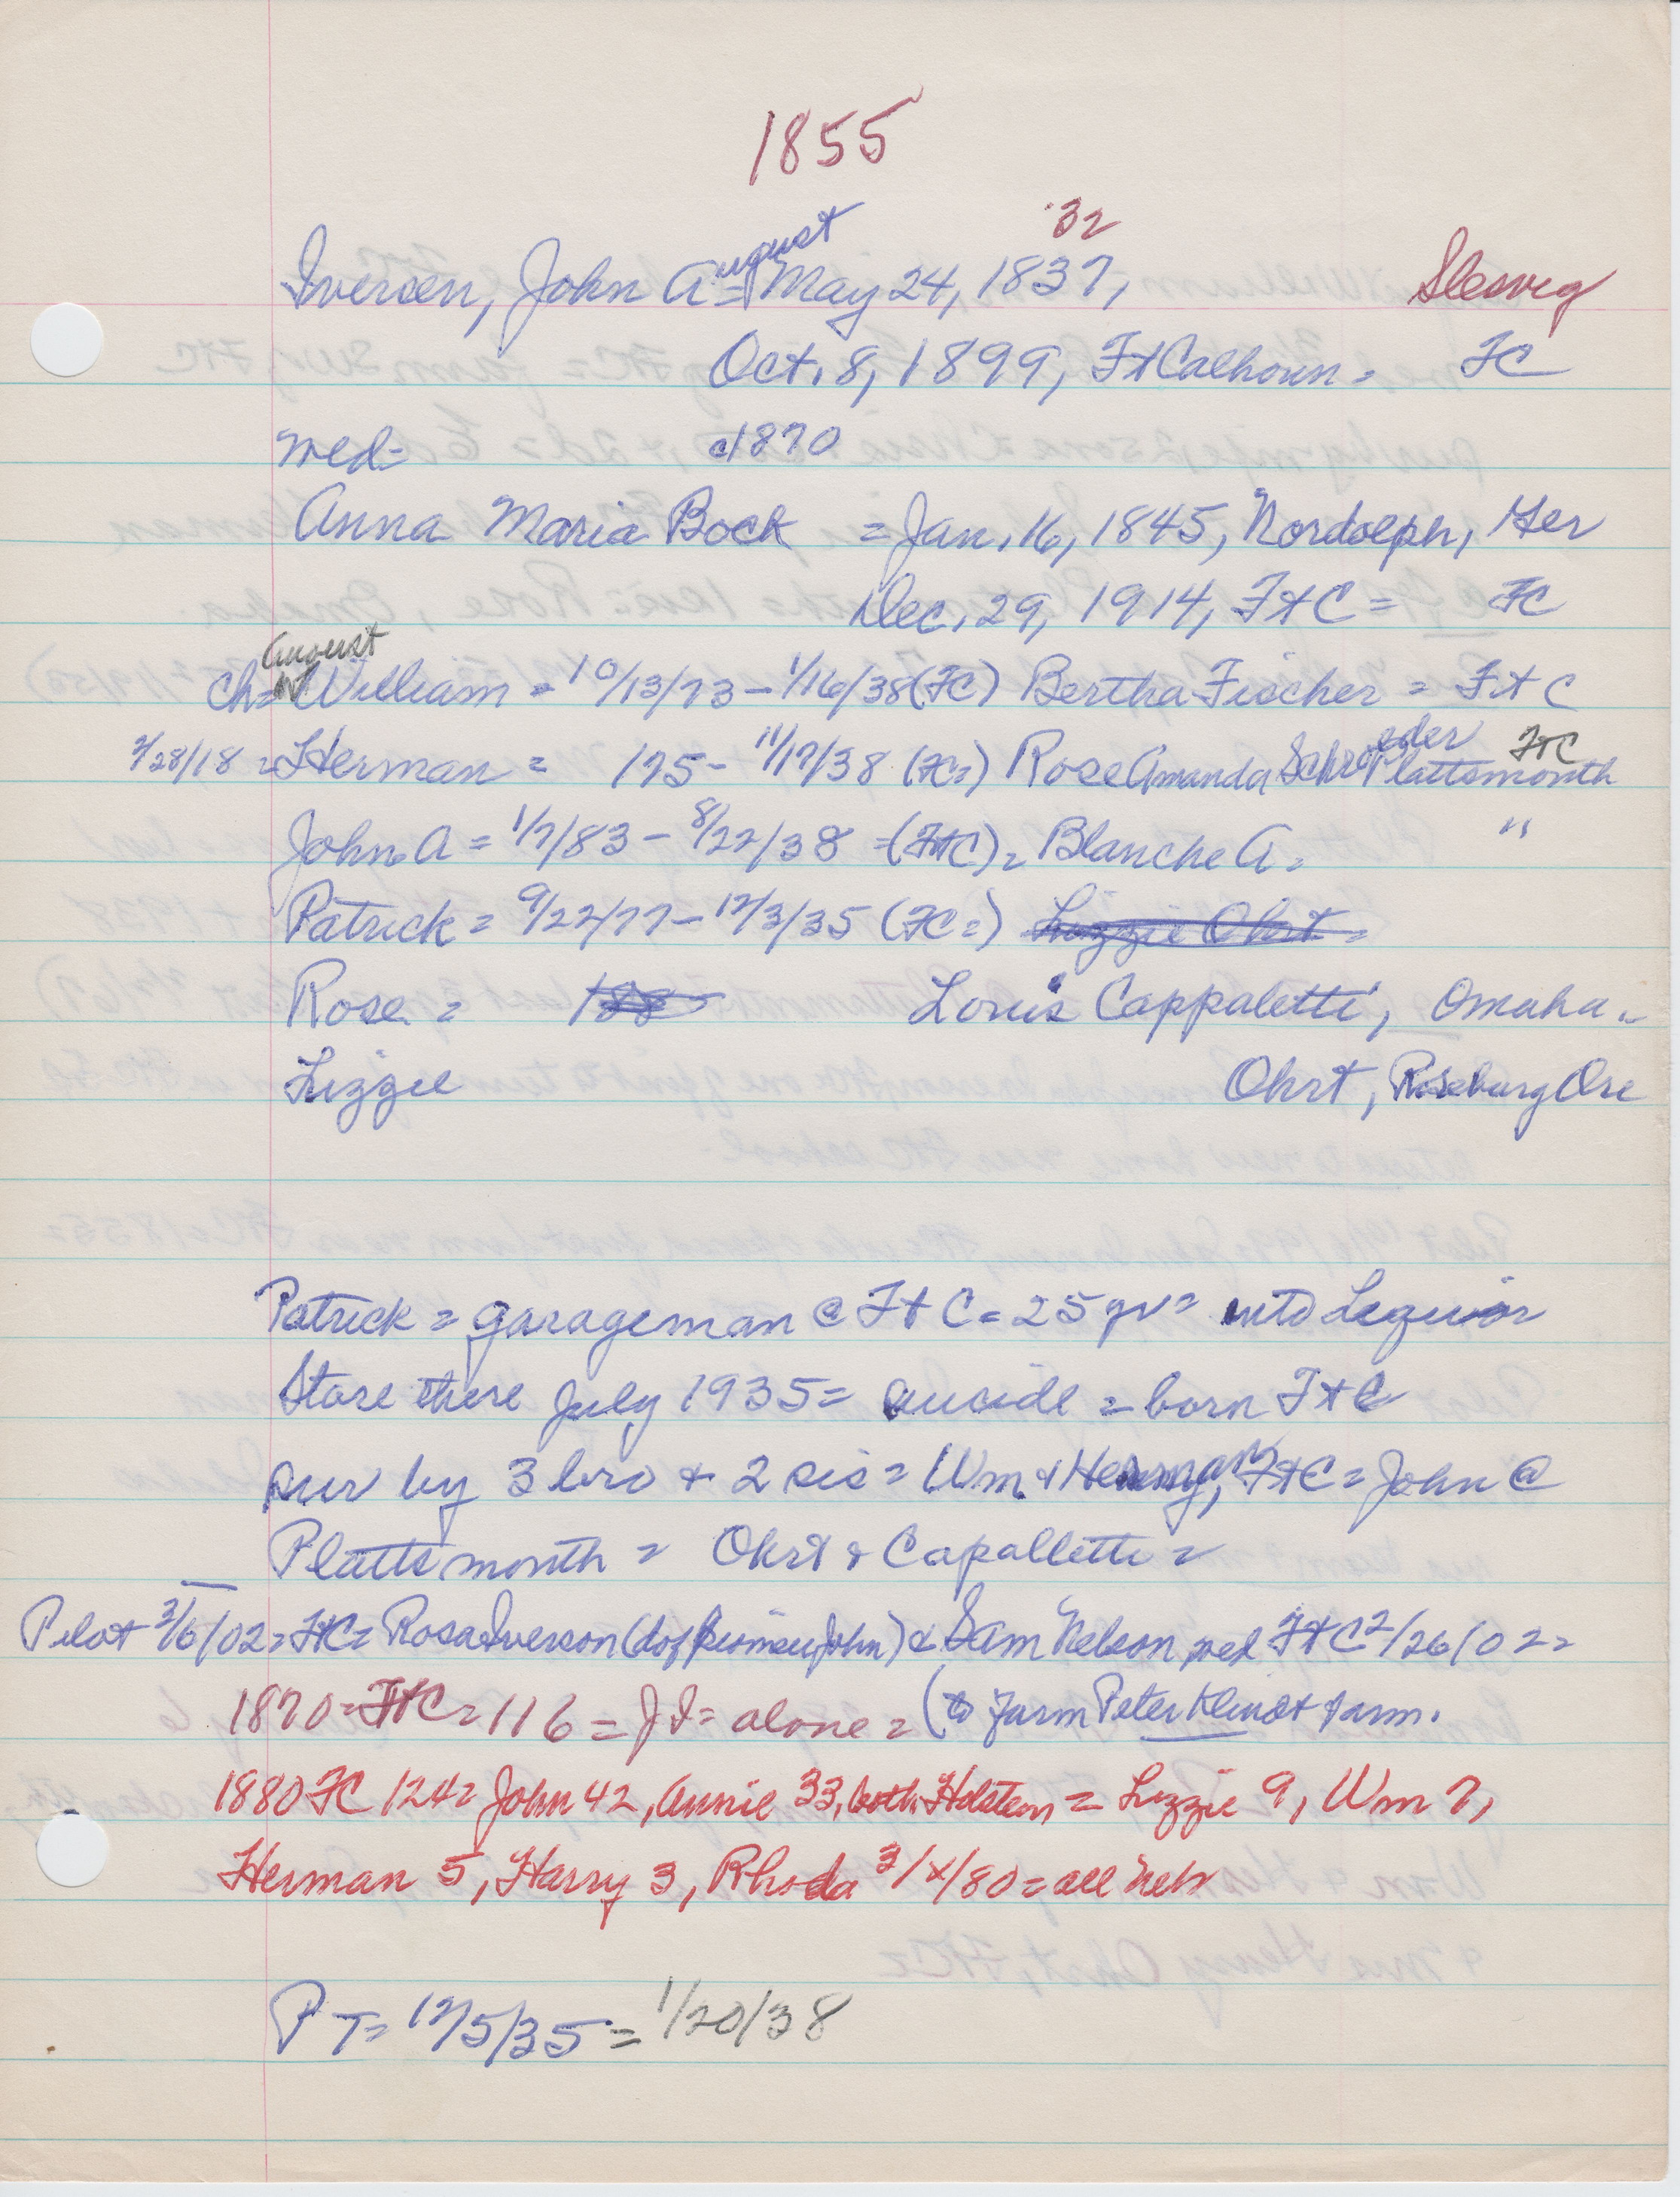 1855
'32
Iversen, John August = May 24, 1837, Slesvig
Oct. 8, 1899, Ft Calhoun = FC
wed = c1870
Anna Maria Bock = Jan. 16, 1845, Nordolph, Ger
Dec. 29, 1914, Ft C = FC
August
ch = William = 10/13/73 - 1/16/38 (FC) Bertha Fischer = Ft C
2/28/18 = Herman = 175 - 11/17/38 (FC =) Rose Amanda Schroeder Plattsmouth FtC
John A = 1/7/83 - 8/22/38 = (FtC) = Blanche A = "
Patrick = 9/22/77 - 12/3/35 (FC =) Lizzie Ohrt =
Rose = 188 Louis Cappaletti, Omaha =
Lizzie Ohrt, Roseburg Ore
Patrick = garageman @ Ft C = 25 yr = into Lequior
Store there July 1935 = suicide = born Ft C
sur by 3 bro & 2 sis = Wm & Herman, FtC = John @
Plattsmouth = Ohrt & Capalletti =
Pilot 3/6/02 = FtC = Rosa Iverson (d of John) & Sam Nelson wed Ft C 2/26/02 =
1870 = FtC = 116 = JI = alone = (to farm Peter Klindt farm.
1880 FC 124 = John 42, Annie 33, both Holstein = Lizzie 9, Wm 7,
Herman 5, Harry 3, Rhoda 3/x/80 = all Neb
PT = 12/5/35 = 1/20/38